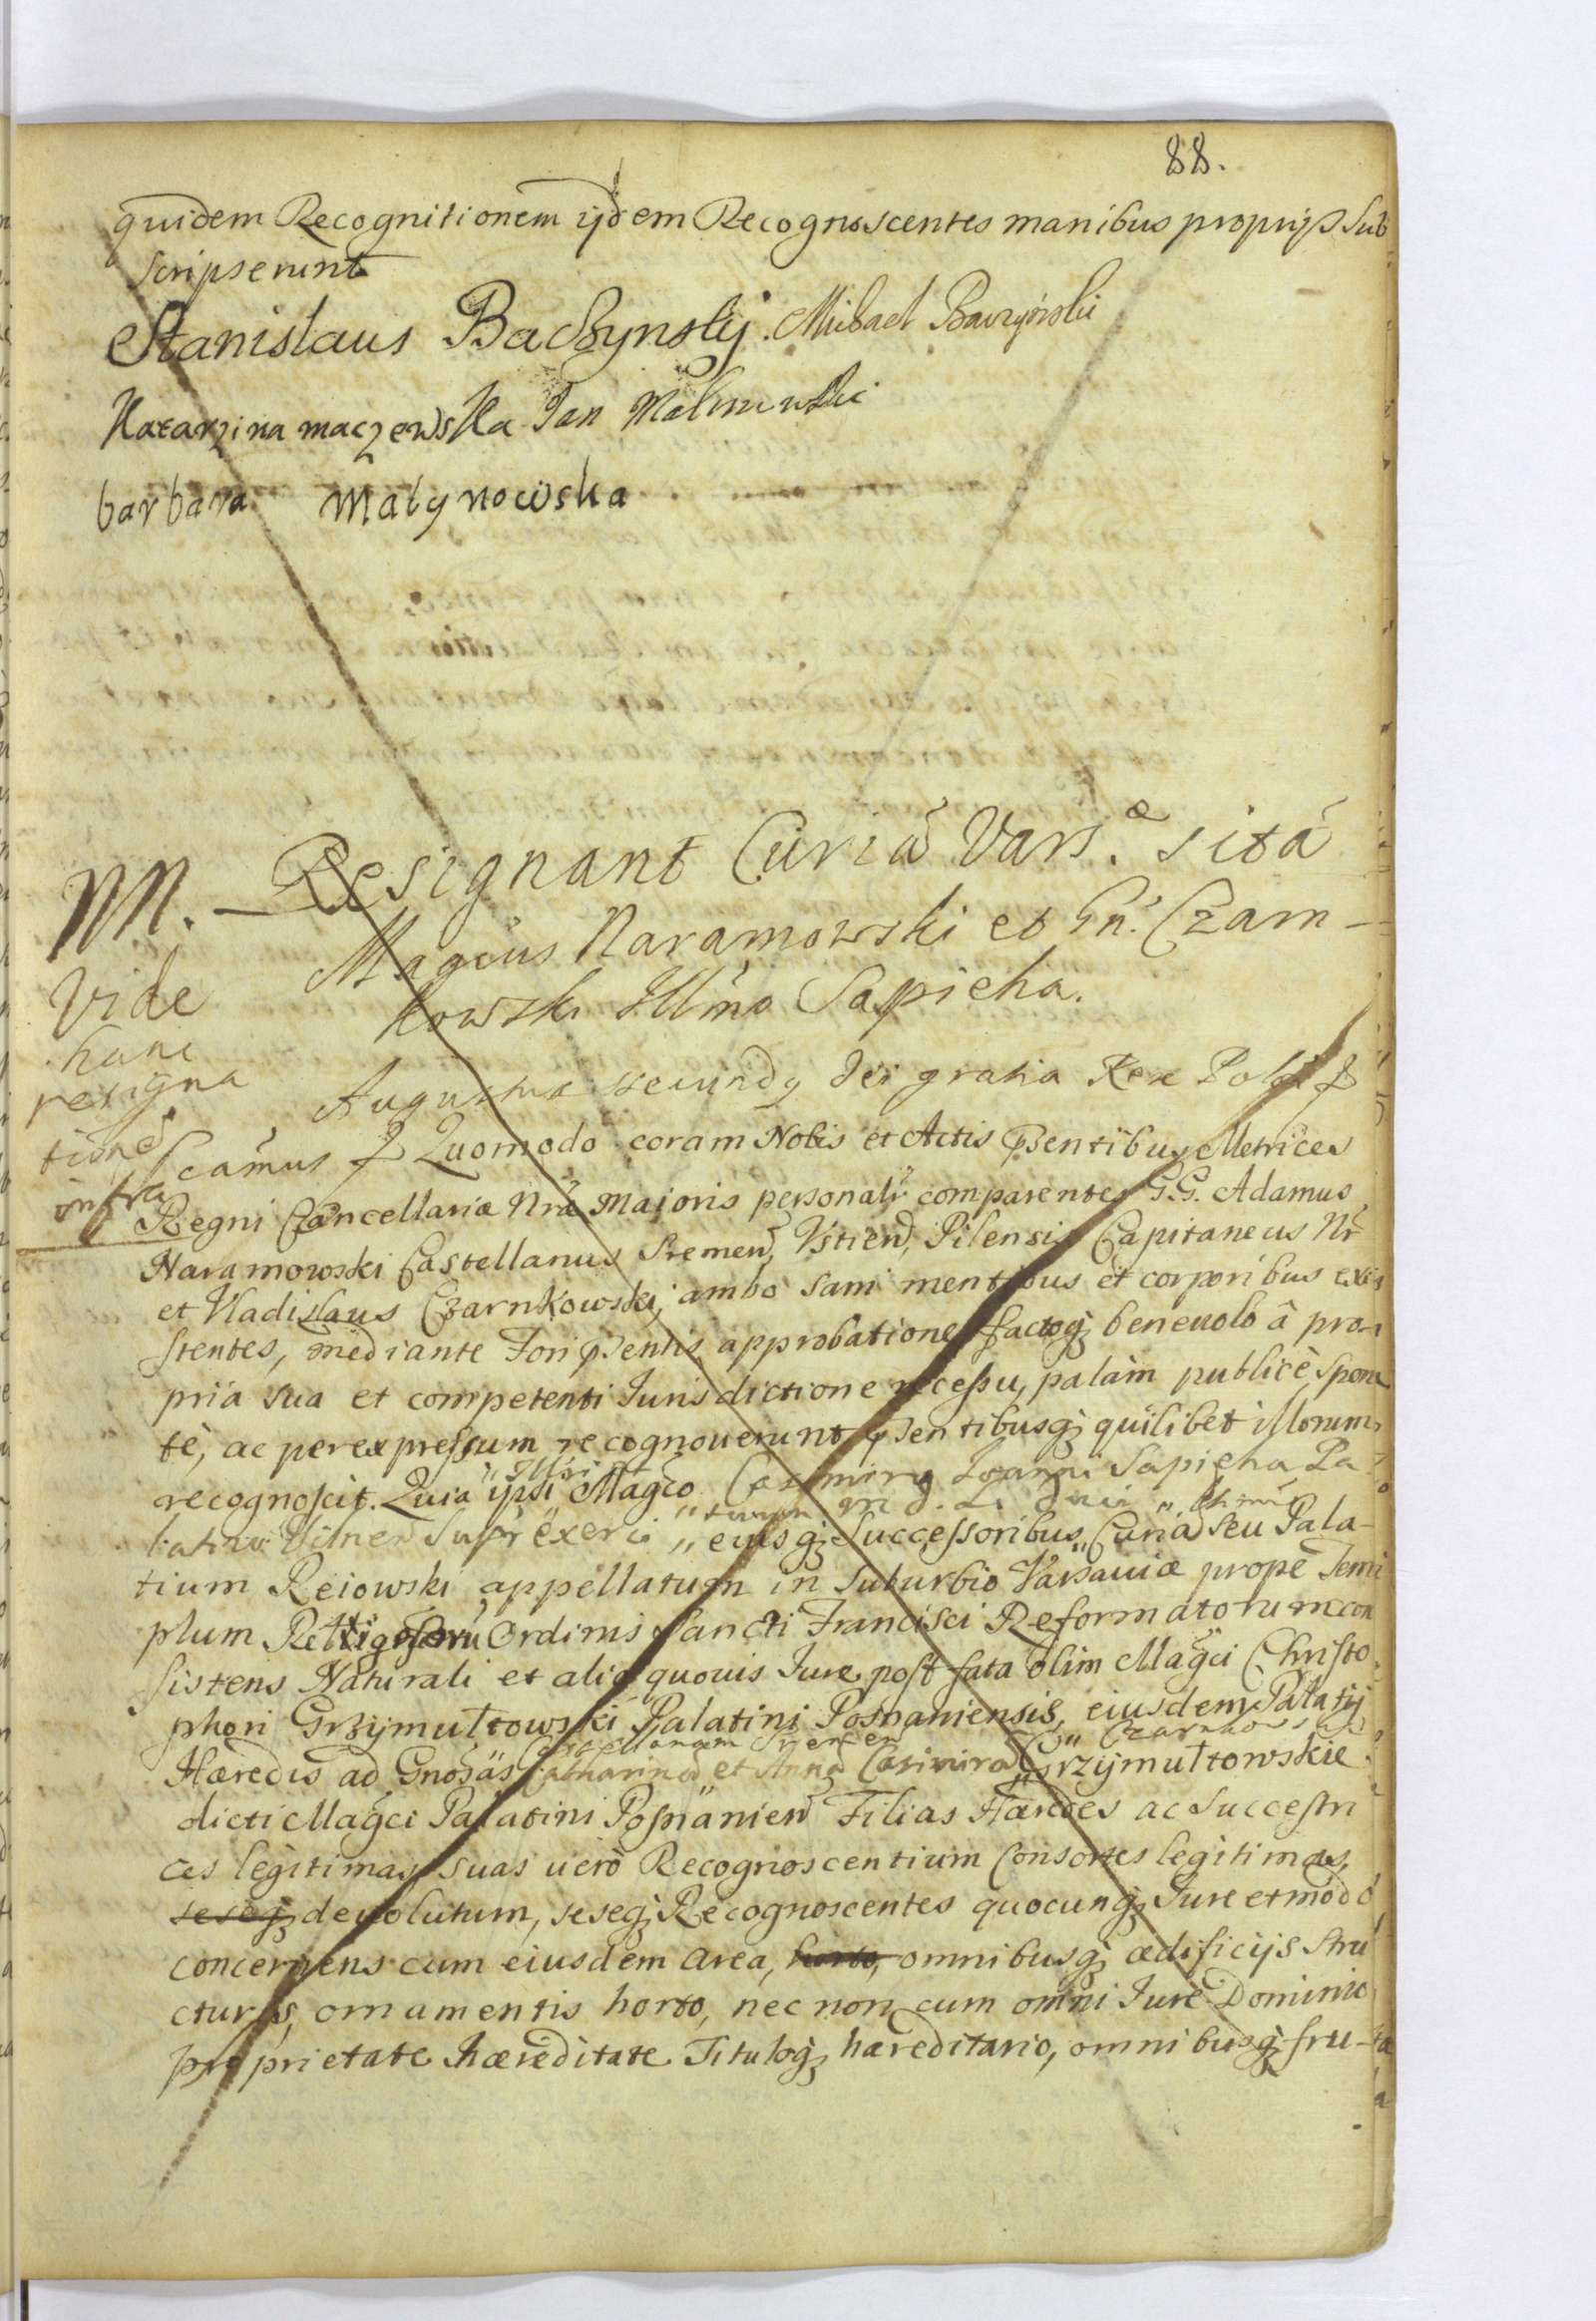 88.
quidem Recognitionem ijdem Recognoscentes manibus proprijs sub
scripserunt
Stanislaus Baczynsky. Michael Baczyński
Katarzina maczewska Jan Malinowski
barbara Malynowska
M. — Resignant Curiã Vars.æ sitã
Magcus Naramowski et Gn. Czarn-
kowski Illmo Sapieha.
Vide
hanc
resigna
tionẽ
infra
Augustus secundy Dei gratia Rex Pol
camus Quomodo coram Nobis et Actis pñsentibus Metrices
Regni Cancellariæ Nræ Majoris personalr comparentes G.G. Adamus
Naramowski Castellanus Sremen, Ustien, Pilensis Capitaneus Nr
et Vladislaus Czarnkowski, ambo sani mentibus et corporibus exi
stentes, mediante Fori pñsentis approbatione factoq; beneuolo â pro-
pria sua et competenti Jurisdictione recessu, palàm publicè spon
tè, ac per expressum recognouerunt pñsentibusq; quilibet illorum
recognoscit. Quia ipsi Illri Magco Casimiro Joanni Sapieha Pa
latino Vilnen Supr exerci tuum M. D. L. Duci
eiusq; Successoribus, Curiã seu Pala-
tium Reiowski appellatum in suburbio Varsauiæ propè Tem
plum Religiosorũ Ordinis Sancti Francisci Reformatorum con
sistens Naturali et alio quouis Jure post fata olim Magci Christo
phori Grzymułtowski Palatini Posnaniensis, eiusdem Palatij
Hæredis ad Gnosas Catharinã Castellanam Sremen et Annã Casimirã Czarnkows Grzymułtowskie
dicti Magci Palatini Posnanien Filias Hæredes ac Successri
ces legitimas, suas uerò Recognoscentium Consortes legitimas,
seseq; deuolutum, seseq; Recognoscentes quocunq; Jure et modo
concernens cum eiusdem area, horto, omnibusq; ædificijs stru
cturis, ornamentis horto, nec non cum omni Jure Dominio
proprietate hæreditate Tituloq; hæreditario, omnibusq; fru-